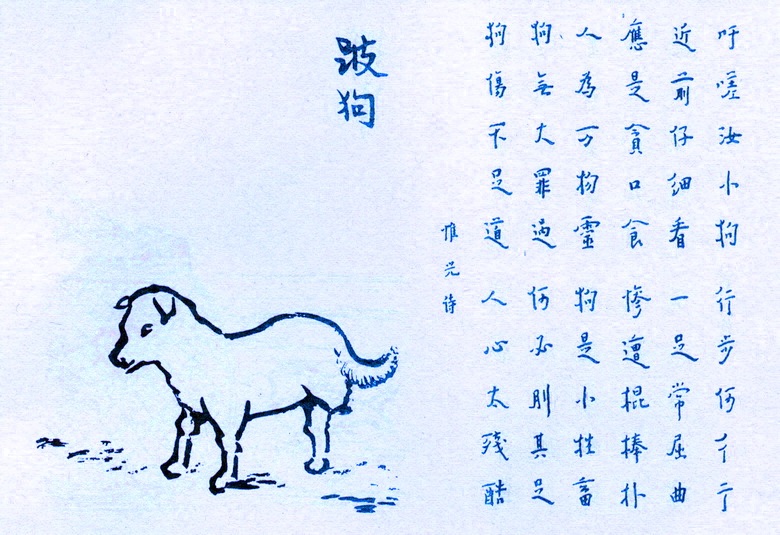 跛狗
吁嗟汝小狗 行步何彳亍
近前仔細看 一足常屈曲
應是貪口食 惨遭棍棒扑
人為万物靈 狗是小牲畜
狗無大罪過 何必刖其足
狗傷不足道 人心太殘酷
惟光诗